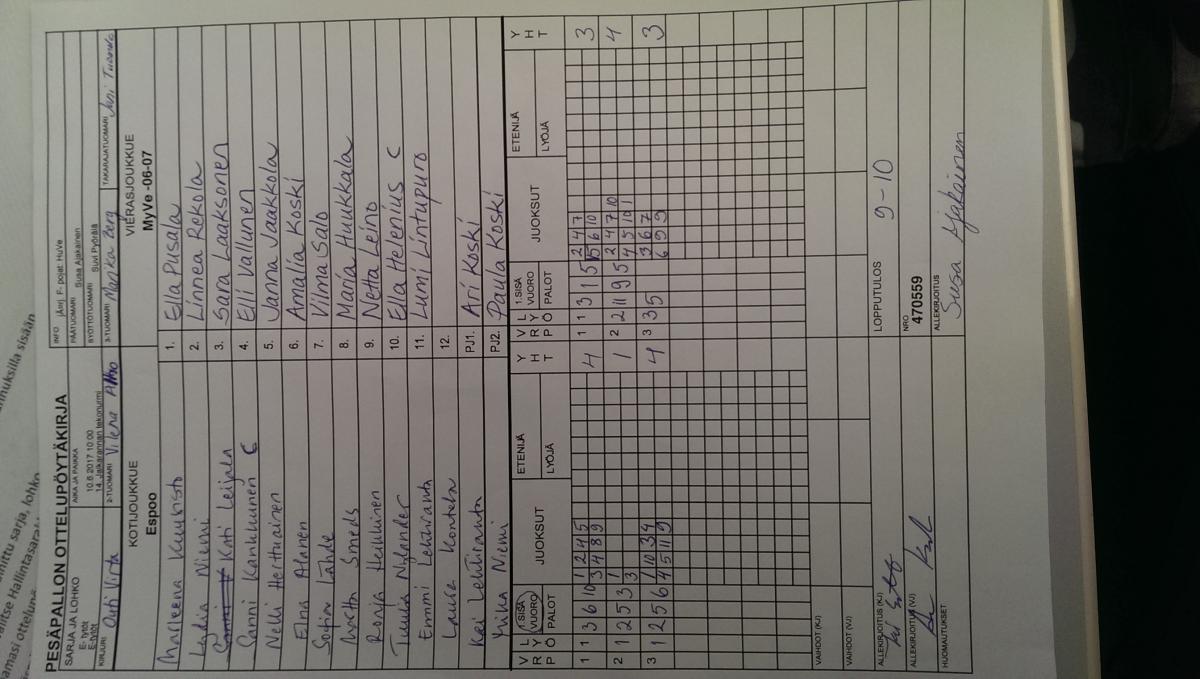 PESÄPALLON OTTELUPÖYTÄKIRJA
SARJA JA LOHKO
E- tytöt
E-tytöt
AIKA JA PAIKKA
10.6.2017 10:00
14. Jalkarannan tekonurmi
INFO
F- pojat: HuVe
PÄÄTUOMARI Susa Ajakainen
SYÖTTÖTUOMARI Suvi Pyörälä
KIRJURI Outi Virta
2-TUOMARI Vilena
3-TUOMARI Marika Berg
TAKARAJATUOMARI
KOTIJOUKKUE
Espoo
VIERASJOUKKUE
MyVe -06-07
Malleena Kuusisto
1. Ella Pusala
Lydia Niemi
2. Linnea Rekola
Kati Leijala
3. Sara Laaksonen
Sanni Kankkunen C
4. Elli Vallunen
Nelli Herttuainen
5. Janna Jaakkola
Elna Alanen
6. Amalia Koski
Sofia Lähde
7. Vilma Salo
Smeds
8. Maria Huukkala
Ronja Heikkinen
9. Netta Leino
Tuulia Nylander
10. Ella Helenius C
Emmi Lehtiranta
11. Lumi Lintupuro
Laura Kontela
12.
Kai Lehtiranta
PJ1. Ari Koski
Mika Niemi
PJ2. Paula Koski
V R P
L Y Ö
1.SISÄ VUORO PALOT
JUOKSUT
ETENIJÄ
LYÖJÄ
Y H T
V R P
L Y Ö
1.SISÄ VUORO PALOT
JUOKSUT
ETENIJÄ
LYÖJÄ
Y H T
1 1 3 6 10
1 2 4 5
3 4 8 9
4
1 1 3 1 5
2 4 7
5 6 10
3
2 1 2 5 3
1
3
1
2 2 11 9 5
2 4 7 10
4 5 10 1
4
3 1 2 5 6
1 10 3 4
4 5 11 9
4
3 3 5
3 6 7
6 9 9
3
VAIHDOT (KJ)
VAIHDOT (VJ)
ALLEKIRJOITUS (KJ)
LOPPUTULOS 9-10
ALLEKIRJOITUS (VJ)
NRO
470559
HUOMAUTUKSET
ALLEKIRJOITUS
Susa Ajakainen